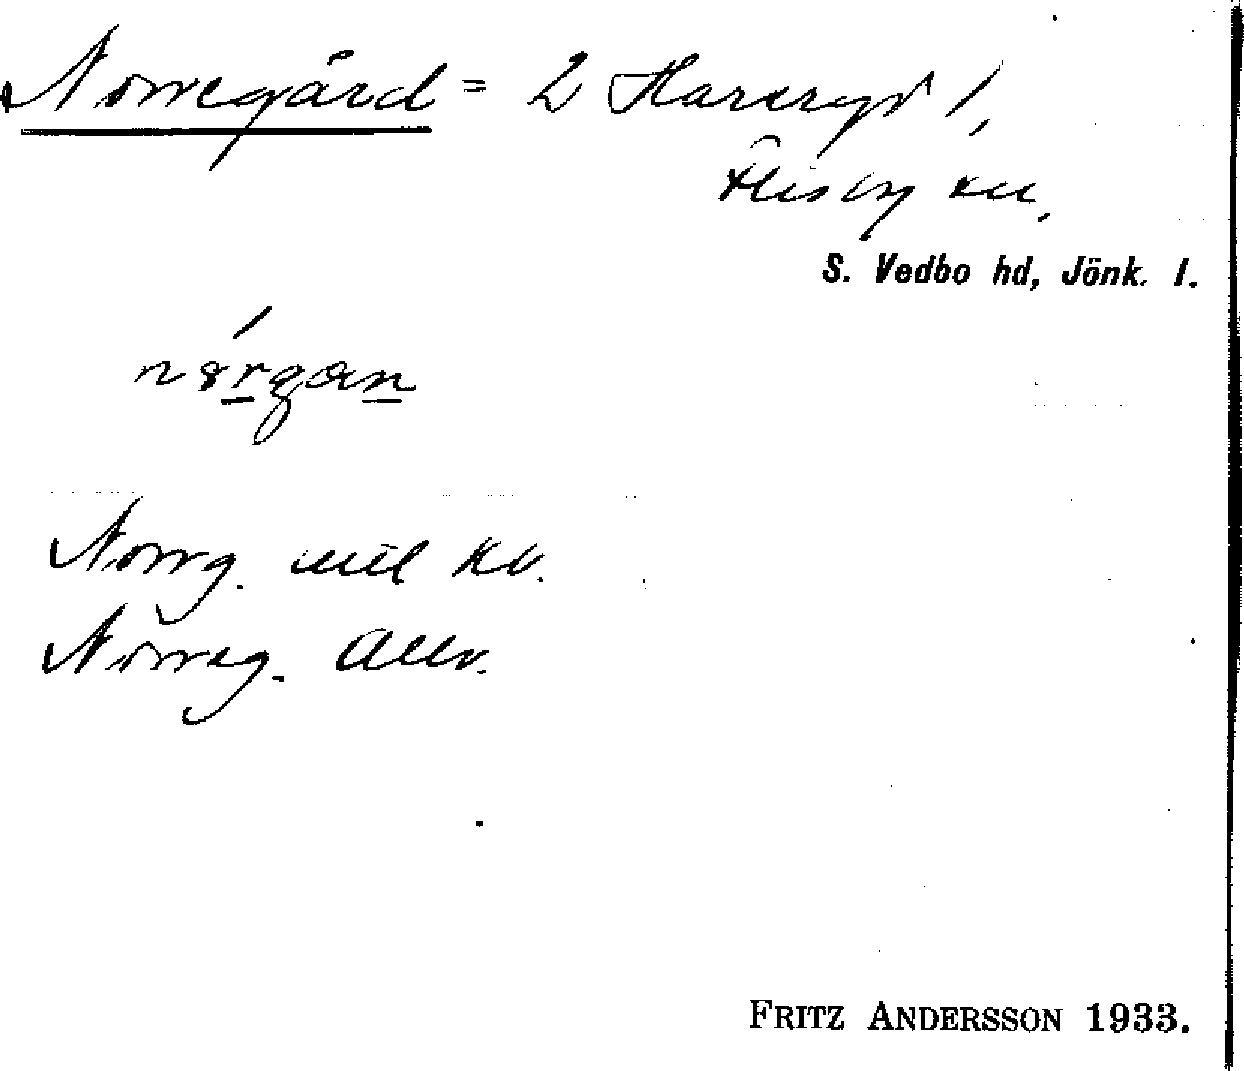 Norregård = 2 Hararyd 1,
Flisby sn,
S. Vedbo hd, Jönk. l.
nørgan
Norrg. utl kv.
Norreg. Allv.
FRITZ ANDERSSON 1933.